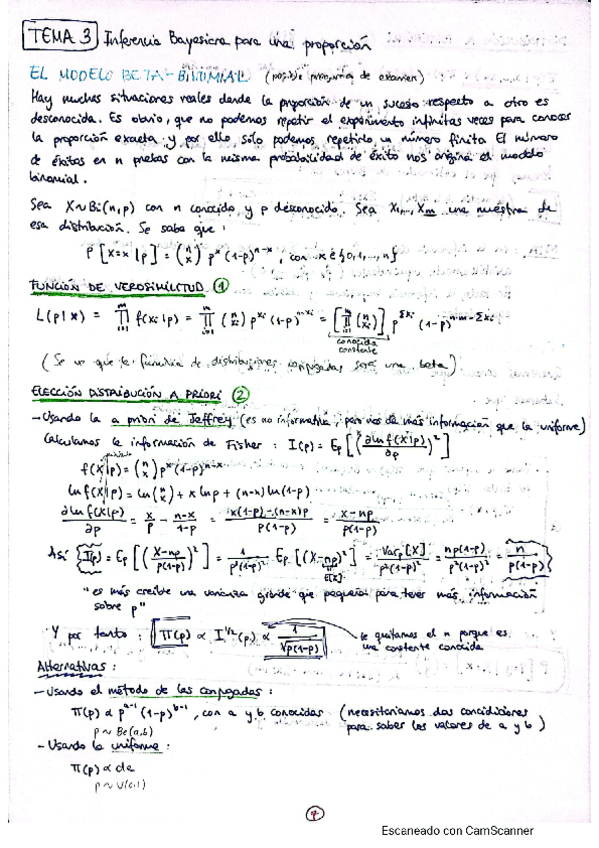 TEMA 3 Inferencia Bayesiana para una proporción
EL MODELO BETA-BINOMIAL (posible pregunta de examen)
Hay muchas situaciones reales donde la proporción de un suceso respecto a otro es
desconocida. Es obvio, que no podemos repetir el experimento infinitas veces para conocer
la proporción exacta y por ello sólo podemos repetirlo un número finito. El número
de éxitos en n pruebas con la misma probabilidad de éxito nos origina el modelo
binomial.
Sea X~Bi(n,p) con n conocido y p desconocido. Sea X₁,...,Xm una muestra de
esa distribución. Se sabe que:
P[X=x|p] = (n x) pˣ (1-p)ⁿ⁻ˣ, con x∈{0,1,...,n}
FUNCIÓN DE VEROSIMILITUD ①
L(p|x) = ∏ᵢ₌₁ᵐ f(xᵢ|p) = ∏ᵢ₌₁ᵐ (n xᵢ) p^xᵢ (1-p)^n-xᵢ = [∏ᵢ₌₁ᵐ (n xᵢ)] p^Σxᵢ (1-p)^n·m-Σxᵢ
conocida
constante
(Se ve que la familia de distribuciones conjugadas será una beta)
ELECCIÓN DISTRIBUCIÓN A PRIORI ②
- Usando la a priori de Jeffrey (es no informativa, pero nos da más información que la uniforme)
Calculamos la información de Fisher: I(p) = Ep[(∂ln f(X|p)/∂p)²]
f(X|p) = (n x) pˣ (1-p)ⁿ⁻ˣ
ln f(X|p) = ln(n x) + x ln p + (n-x) ln(1-p)
∂ln f(X|p)/∂p = x/p - n-x/1-p = x(1-p)-(n-x)p/p(1-p) = x-np/p(1-p)
Así I(p) = Ep[(X-np/p(1-p))²] = 1/p²(1-p)² Ep[(X-np)²] = Varp[X]/p²(1-p)² = np(1-p)/p²(1-p)² = n/p(1-p)
E[X]
"es más creíble una varianza grande que pequeña para tener más información
sobre p"
Y por tanto: π(p) ∝ I^1/2(p) ∝ 1/√p(1-p)
le quitamos el n porque es
una constante conocida
Alternativas:
- Usando el método de las conjugadas:
π(p) ∝ p^a-1 (1-p)^b-1, con a y b conocidas (necesitaríamos dos condiciones
para saber los valores de a y b)
p ~ Be(a,b)
- Usando la uniforme:
π(p) ∝ cte
p ~ U(0,1)
Escaneado con CamScanner